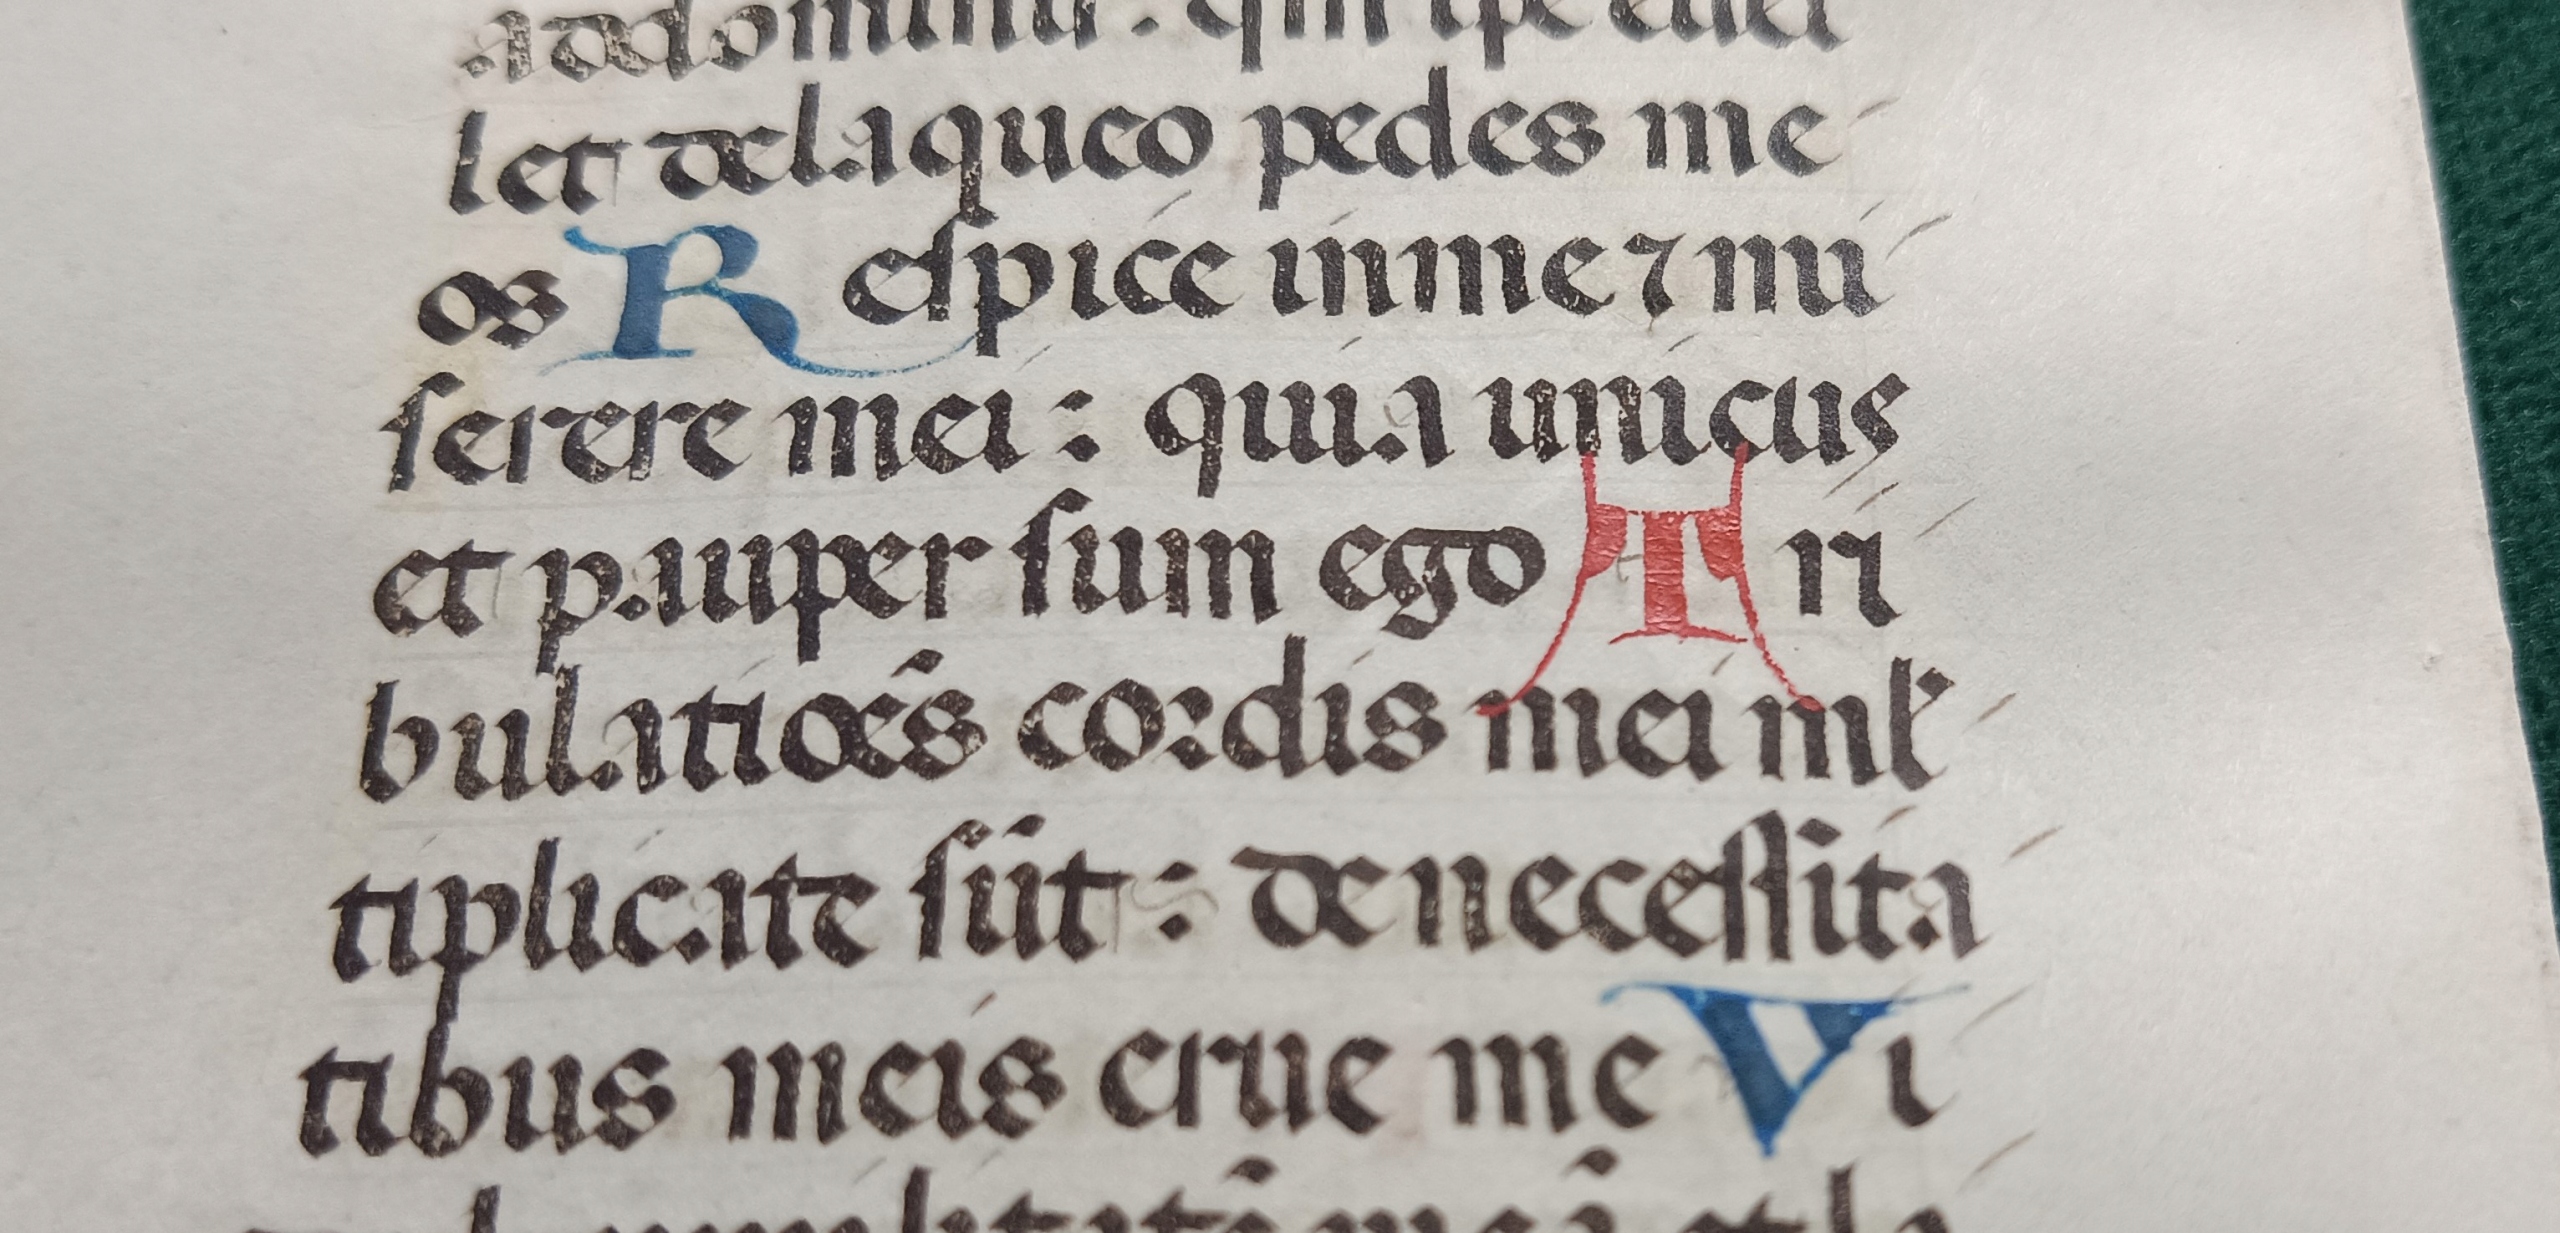 addominū. qm̄ ip̄e euel
let delaqueo pedes me
os Reſpice inme ⁊ mi
ſerere mei: quia unicus
et pauper ſum ego Tri
bulatiōes cordis mei ml̓
tiplicate sūt: deneceſſita
tibus meis erue me Vi
humilitatē meā et la